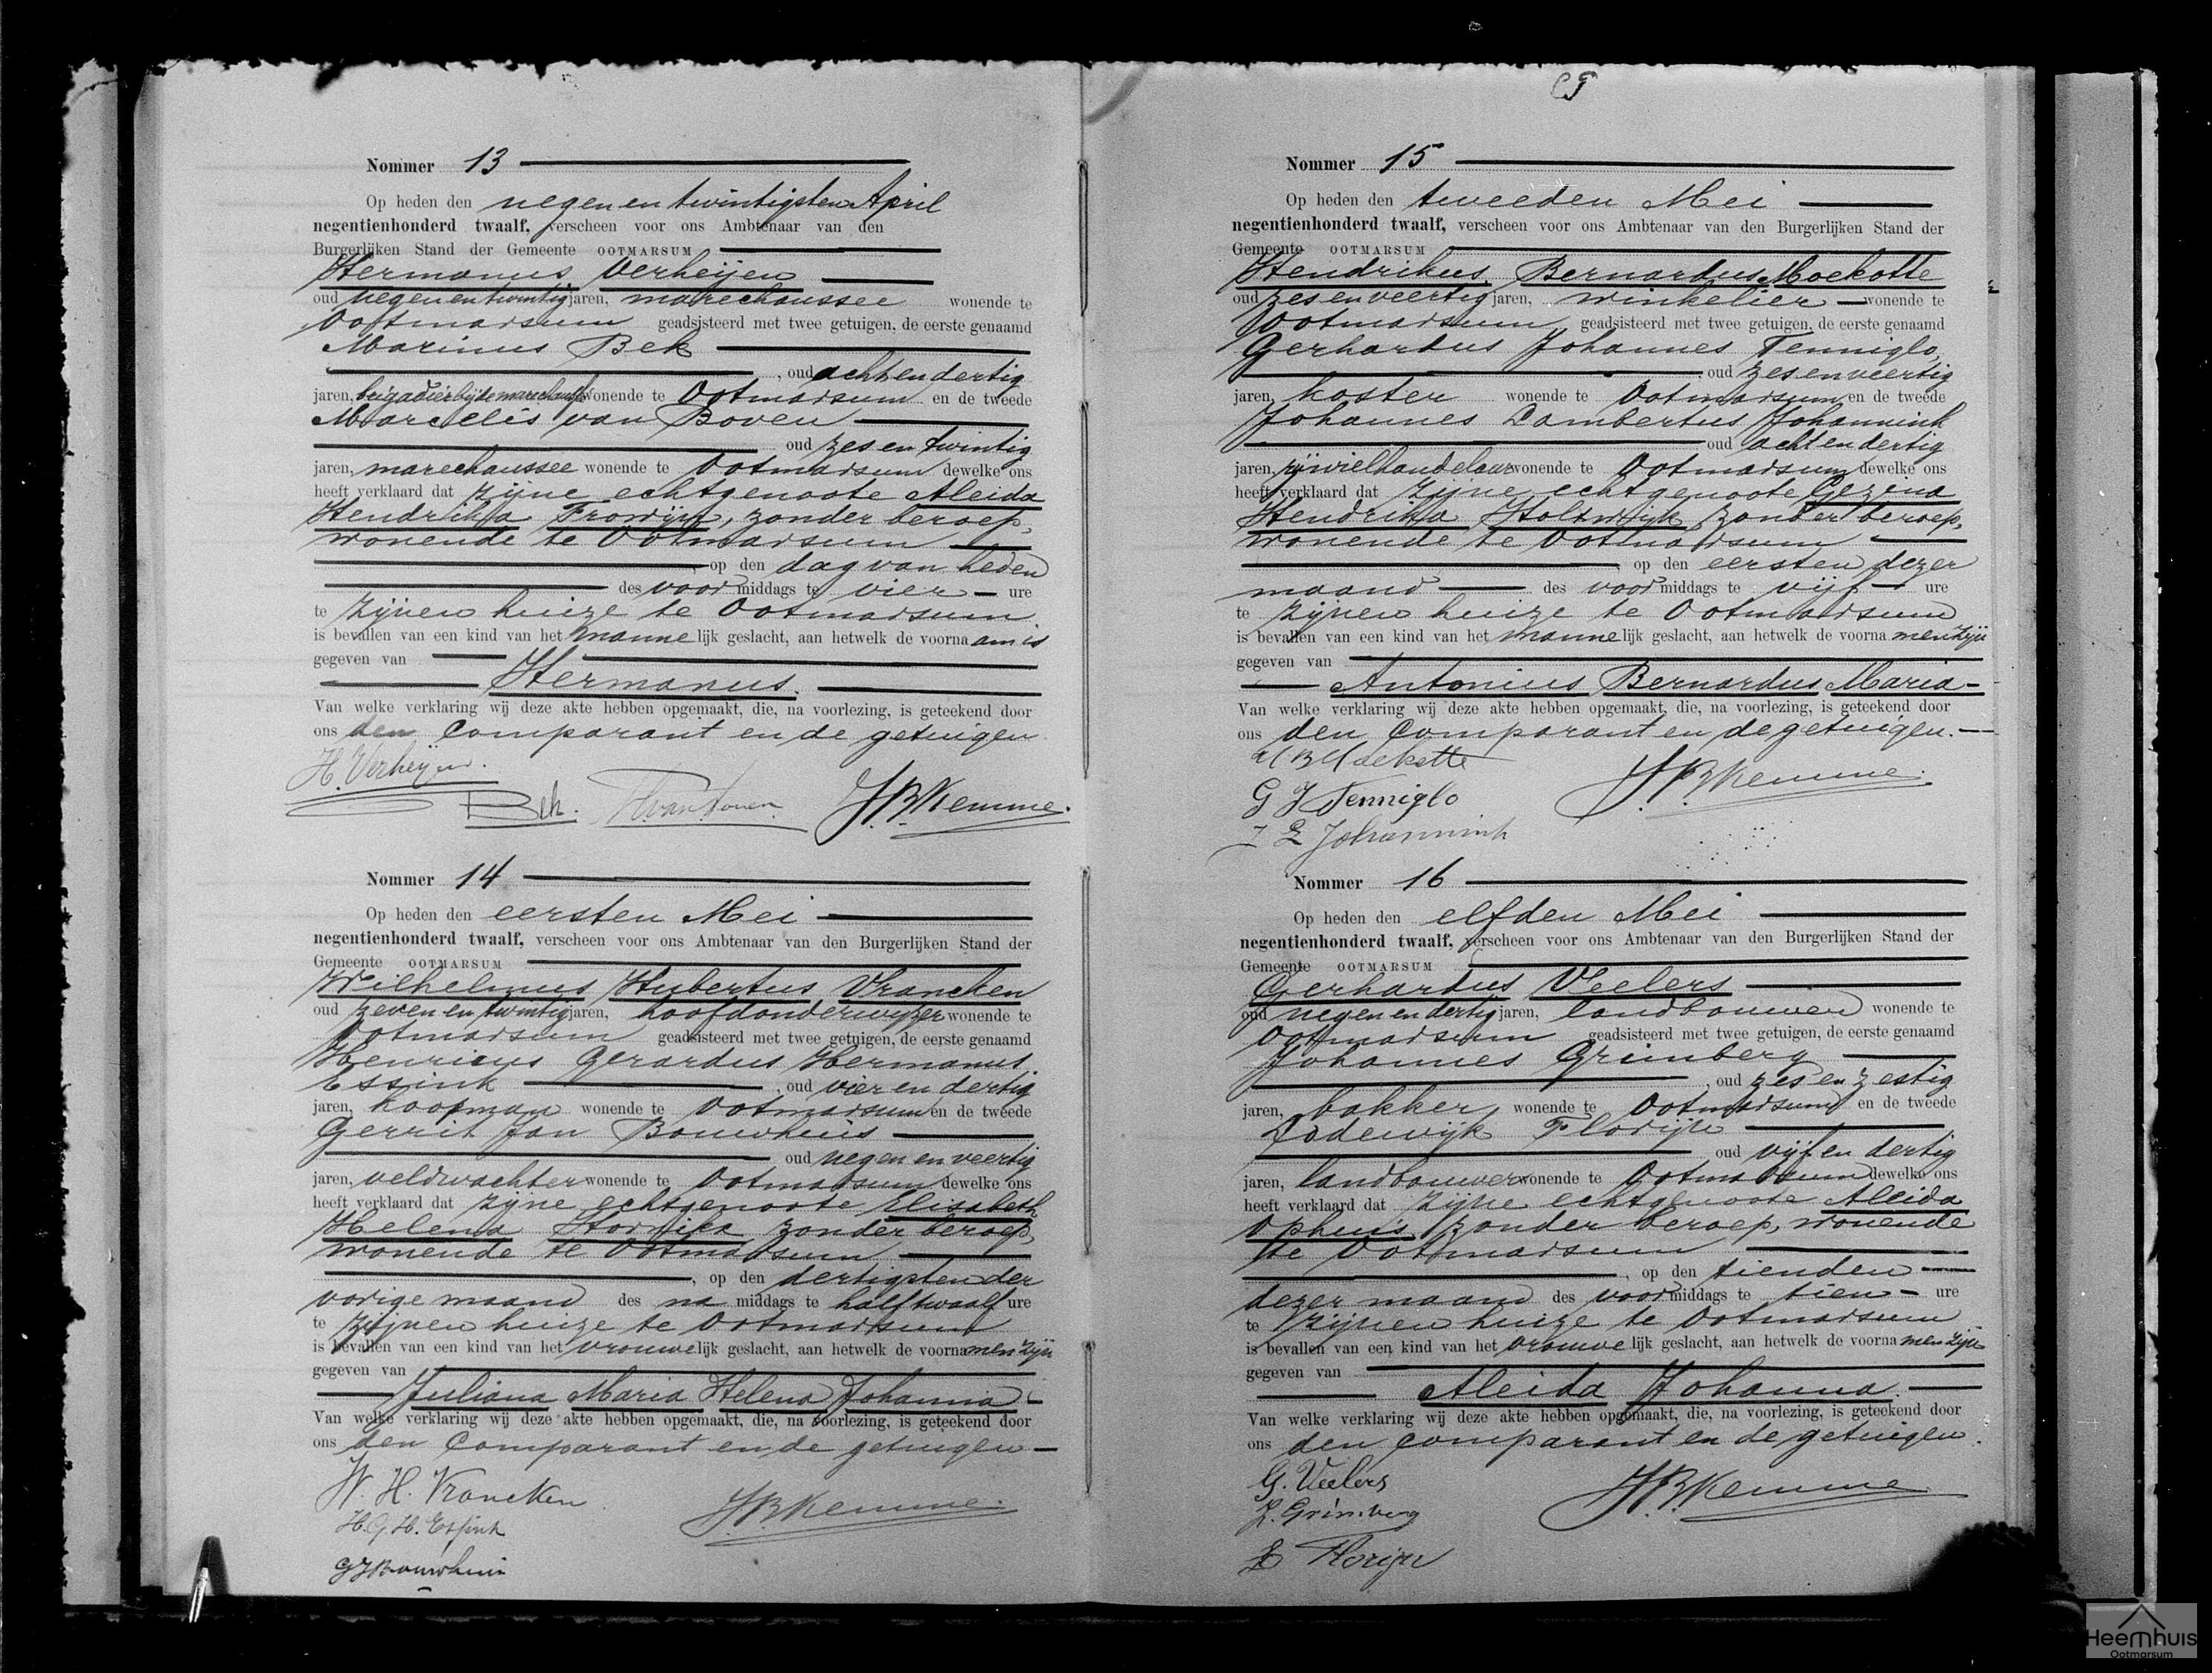 Nommer 13
Op heden den negenentwintigsten April
negentienhonderd twaalf, verscheen voor ons Ambtenaar van den
Burgerlijken Stand der Gemeente OOTMARSUM
Hermanus Verheijen
oud negenentwintig jaren, marechaussee wonende te
Ootmarsum geadsisteerd met twee getuigen, de eerste genaamd
Marinus Bek
, oud achtendertig
jaren, brigadier bij de marechaussee wonende te Ootmarsum en de tweede
Marcelis van Boven
oud zesentwintig
jaren, marechaussee wonende te Ootmarsum dewelke ons
heeft verklaard dat zijne echtgenoote Aleida
Hendrika Frowijn, zonder beroep,
wonende te Ootmarsum
, op den dag van heden
des voormiddags te vier ure
te zijnen huize te Ootmarsum
is bevallen van een kind van het mannelijk geslacht, aan hetwelk de voornaam is
gegeven van
Hermanus.
Van welke verklaring wij deze akte hebben opgemaakt, die, na voorlezing, is geteekend door
ons den comparant en de getuigen
H. Verheijen.
Bek. JBKemme.
Nommer 14
Op heden den eersten Mei
negentienhonderd twaalf, verscheen voor ons Ambtenaar van den Burgerlijken Stand der
Gemeente OOTMARSUM
Wilhelmus Hubertus Vrancken
oud zevenentwintig jaren, hoofdonderwijzer wonende te
Ootmarsum geadsisteerd met twee getuigen, de eerste genaamd
Henricus Gerardus Hermanus
Essink , oud vierendertig
jaren, koopman wonende te Ootmarsum en de tweede
Gerrit Jan Bouwhuis
oud negenenveertig
jaren, veldwachter wonende te Ootmarsum dewelke ons
heeft verklaard dat zijne echtgenoote Elisabeth
Helena zonder beroep,
wonende te Ootmarsum
, op den dertigsten der
vorige maand des namiddags te half twaalf ure
te zijnen huize te Ootmarsum
is bevallen van een kind van het vrouwelijk geslacht, aan hetwelk de voornamen zijn
gegeven van
Juliana Maria Helena Johanna
Van welke verklaring wij deze akte hebben opgemaakt, die, na voorlezing, is geteekend door
ons den comparant en de getuigen
W. H. Vrancken
JBKemme.
H.G.H. Essink
GJBouwhuis
Nommer 15
Op heden den tweeden Mei
negentienhonderd twaalf, verscheen voor ons Ambtenaar van den Burgerlijken Stand der
Gemeente OOTMARSUM
Hendrikus Bernardus Moekotte
oud zesenveertig jaren, winkelier wonende te
Ootmarsum geadsisteerd met twee getuigen, de eerste genaamd
Gerhardus Johannes Tenniglo,
oud zesenveertig
jaren, koster wonende te Ootmarsum en de tweede
Johannes Lambertus Johannink
oud achtendertig
jaren, rijwielhandelaar wonende te Ootmarsum dewelke ons
heeft verklaard dat zijne echtgenoote Gezina
Hendrika Holtwijk, zonder beroep,
wonende te Ootmarsum
, op den eersten dezer
maand des voormiddags te vijf ure
te zijnen huize te Ootmarsum
is bevallen van een kind van het mannelijk geslacht, aan hetwelk de voornamen zijn
gegeven van
Antonius Bernardus Maria
Van welke verklaring wij deze akte hebben opgemaakt, die, na voorlezing, is geteekend door
ons den comparant en de getuigen.
HBMoekotte
G J Tenniglo JBKemme.
J L Johannink
Nommer 16
Op heden den elfden Mei
negentienhonderd twaalf, verscheen voor ons Ambtenaar van den Burgerlijken Stand der
Gemeente OOTMARSUM
Gerhardus Veelers
oud negenendertig jaren, landbouwer wonende te
Ootmarsum geadsisteerd met twee getuigen, de eerste genaamd
Johannes Grimberg
, oud zesenzestig
jaren, bakker, wonende te Ootmarsum en de tweede
Lodewijk Florijn
oud vijfendertig
jaren, landbouwer wonende te Ootmarsum dewelke ons
heeft verklaard dat zijne echtgenoote Aleida
Ophuis, zonder beroep, wonende
te Ootmarsum
, op den tienden
dezer maand des voormiddags te tien ure
te zijnen huize te Ootmarsum
is bevallen van een kind van het vrouwelijk geslacht, aan hetwelk de voornamen zijn
gegeven van
Aleida Johanna.
Van welke verklaring wij deze akte hebben opgemaakt, die, na voorlezing, is geteekend door
ons den comparant en de getuigen.
G. Veelers
Grimberg JBKemme
L Florijn
Heemhuis
Ootmarsum